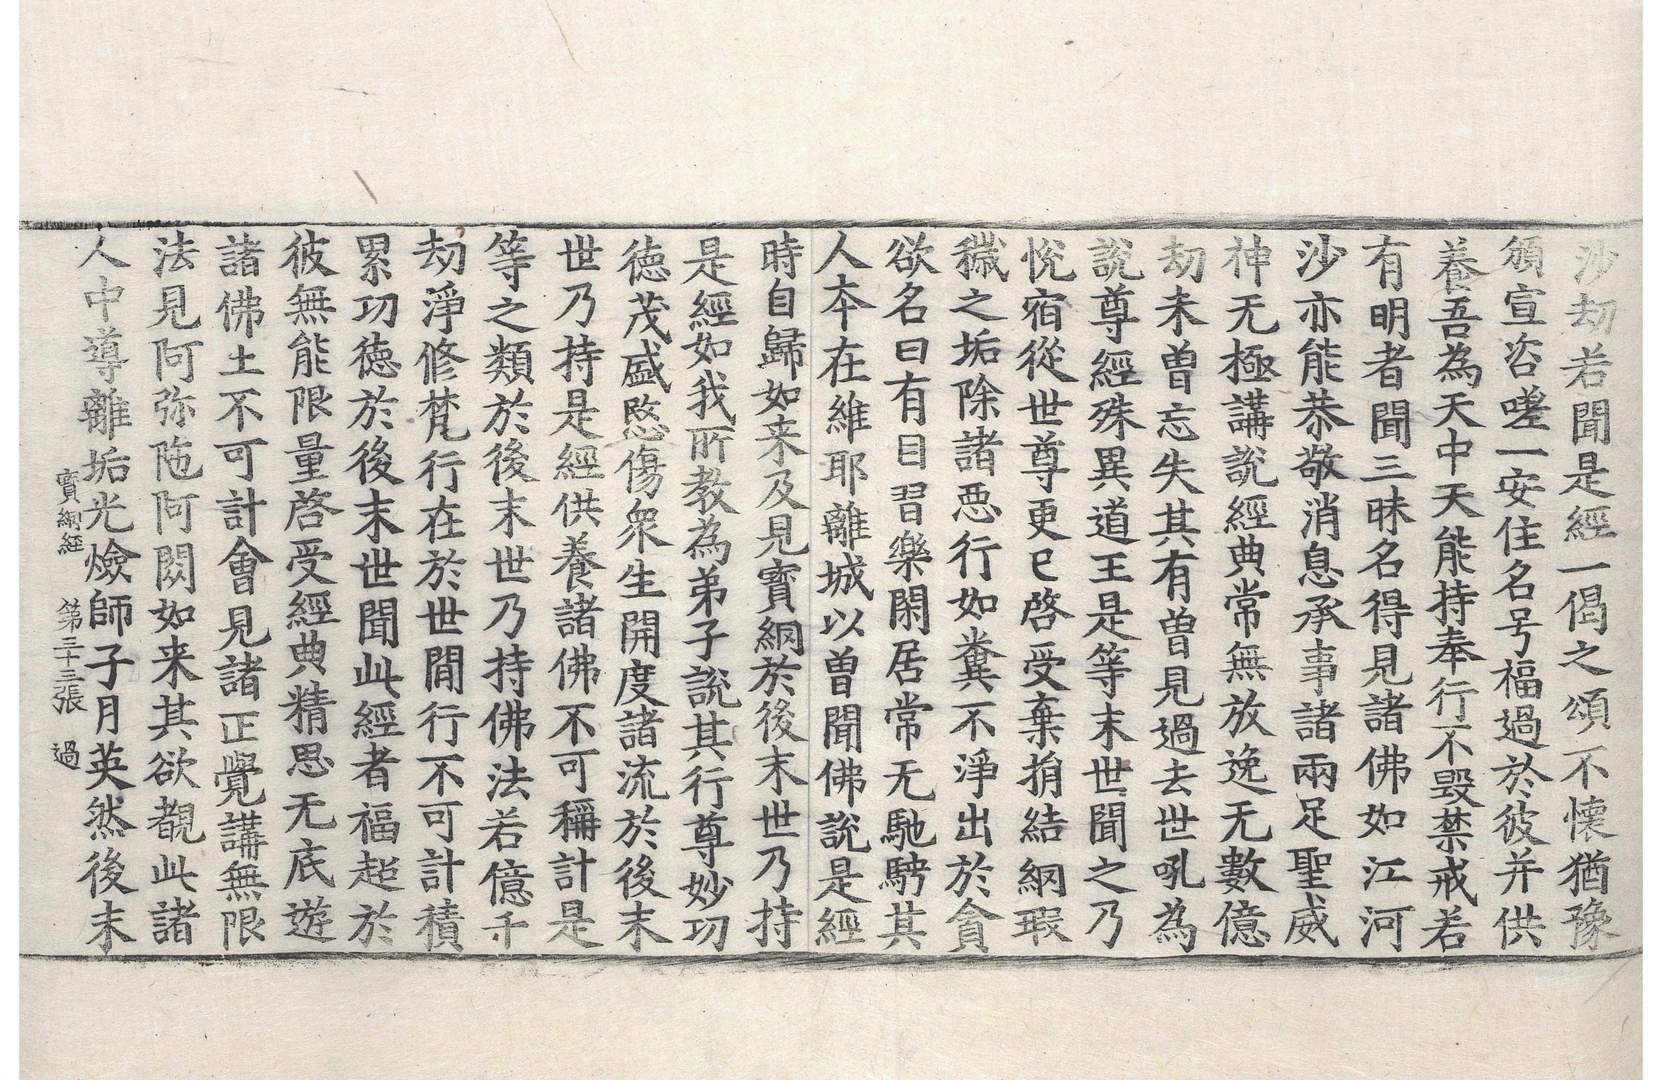 沙劫若聞是經一偈之頌不懷猶豫
頒宣咨嗟一安住名号福過於彼并供
養吾為天中天能持奉行不毀禁戒若
有明者聞三昧名得見諸佛如江河
沙亦能恭敬消息承事諸兩足聖威
神无極講說經典常無放逸无數億
劫未曾忘失其有曾見過去世吼為
說尊經殊異道王是等末世聞之乃
悅宿從世尊更已啓受棄捐結網瑕
穢之垢除諸惡行如糞不淨出於貪
欲名曰有目習樂閑居常无馳騁其
人本在維耶離城以曾聞佛說是經
時自歸如来及見寶網於後末世乃持
是經如我所教為弟子說其行尊妙功
德茂盛愍傷衆生開度諸流於後末
世乃持是經供養諸佛不可稱計是
等之類於後末世乃持佛法若億千
劫淨修梵行在於世間行不可計積
累功德於後末世聞此經者福超於
彼無能限量啓受經典精思无底遊
諸佛土不可計會見諸正覺講無限
法見阿弥陁阿閦如来其欲覩此諸
人中導離垢光燄師子月英然後末
寶網經 第三十三張 過